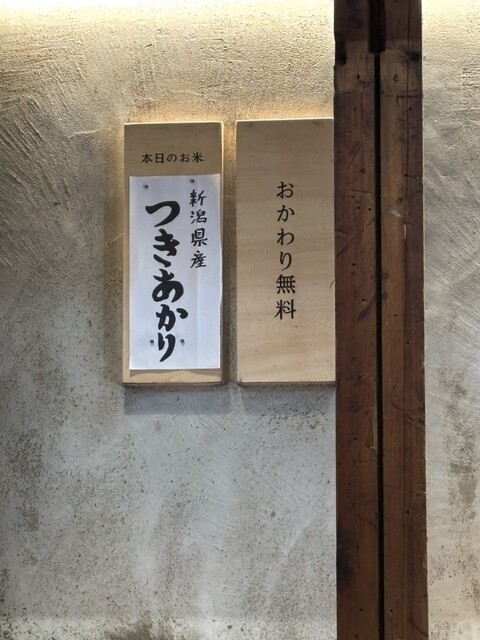 本日のお米
新潟県産
つきあかり
おかわり無料